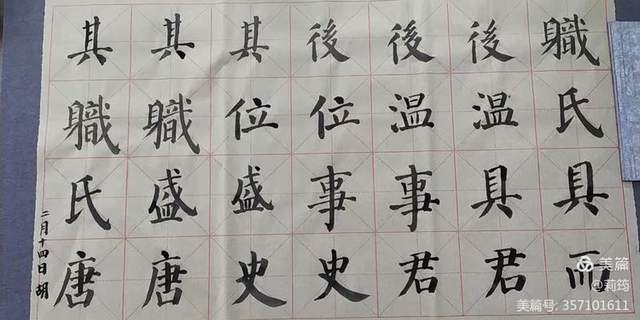 其其其後後後職
職職位位温温氏
氏盛盛事事具具
唐唐史史君君而
二月十四日 胡
美篇
@莉筠
美篇号: 357101611